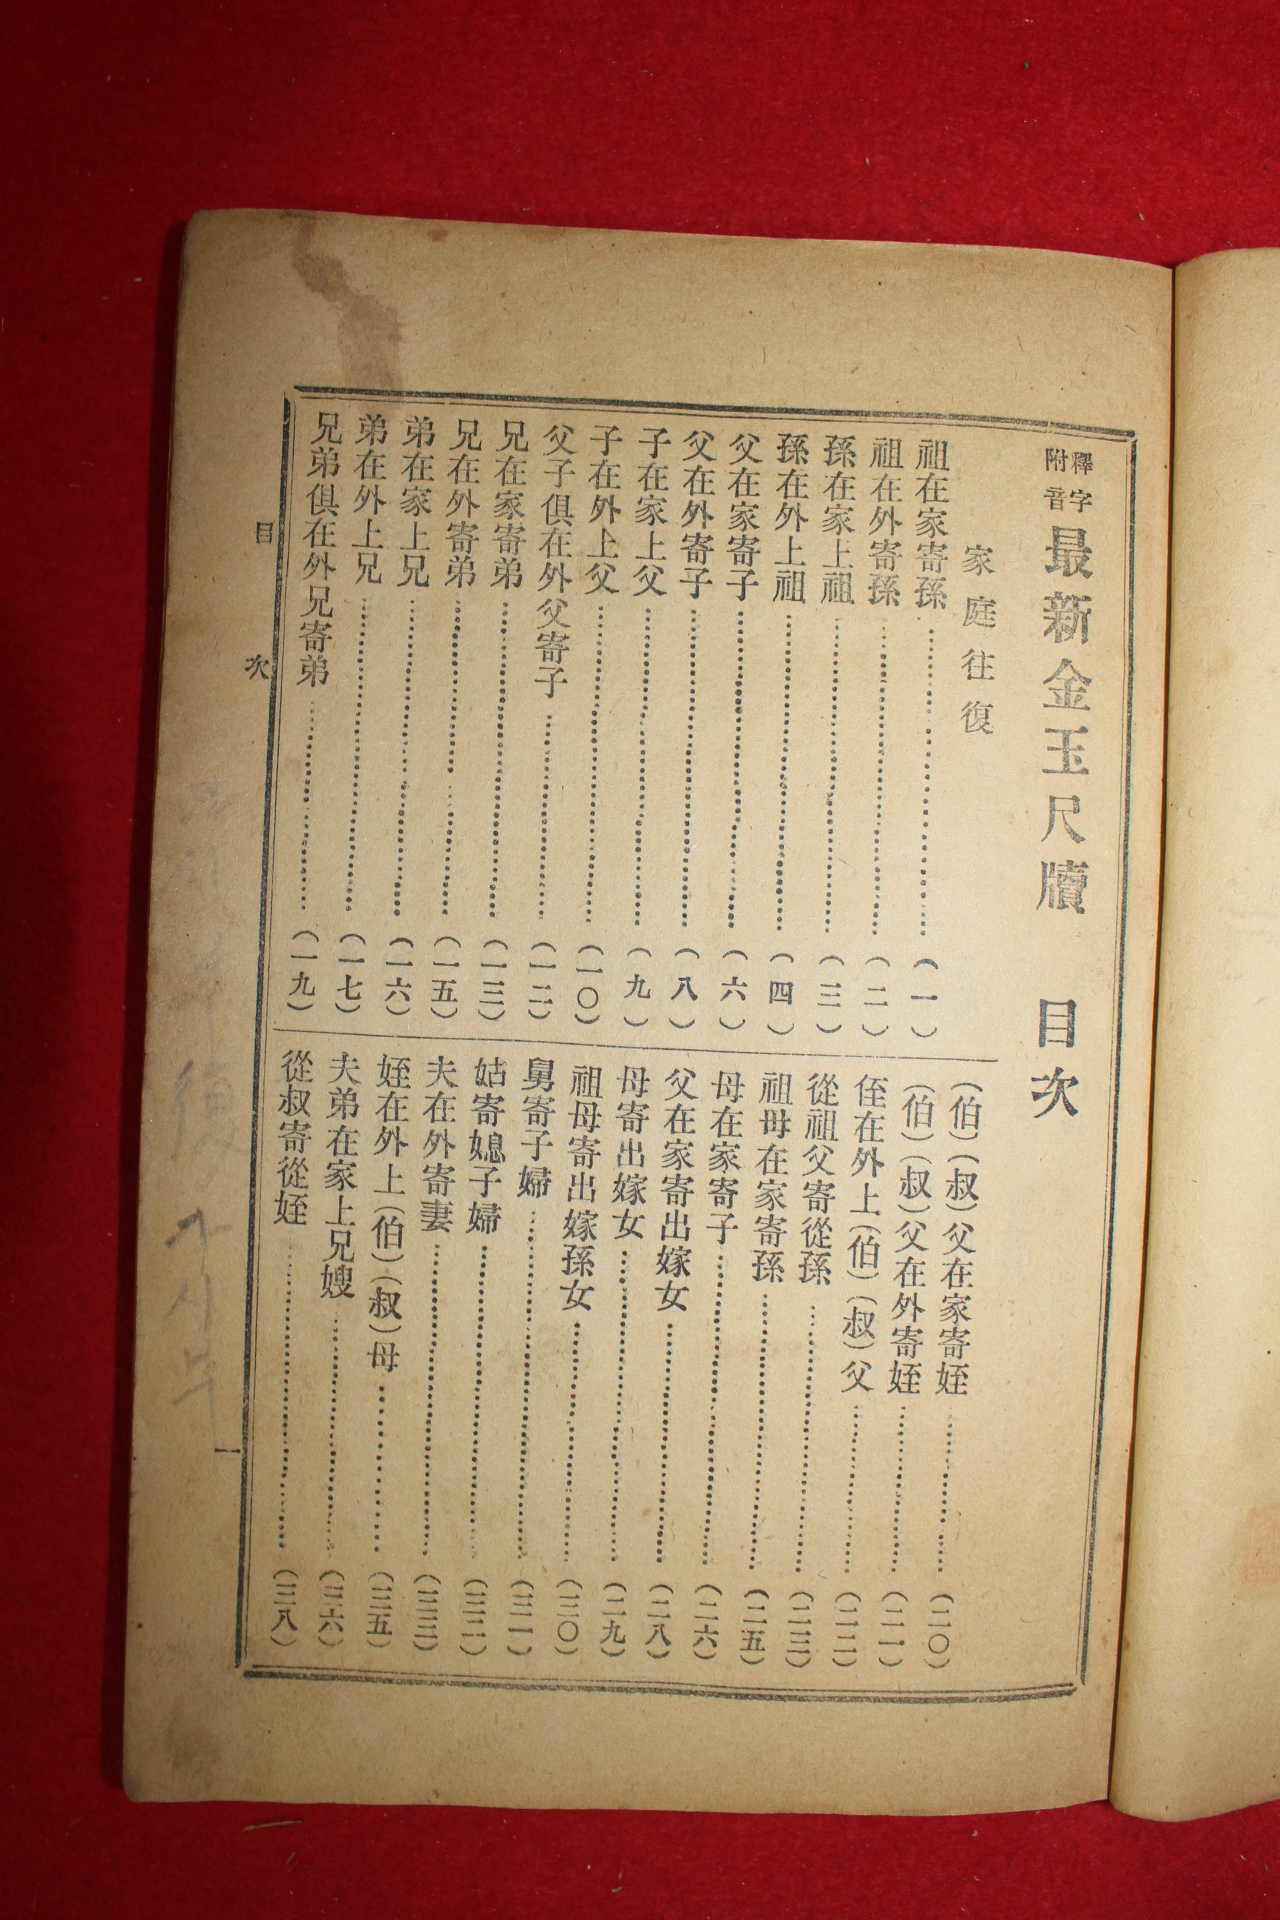 釋字
附音
最新金玉尺牘 目次
家庭往復
祖在家寄孫……(一)
祖在外寄孫……(二)
孫在家上祖……(三)
孫在外上祖……(四)
父在家寄子……(六)
父在外寄子……(八)
子在家上父……(九)
子在外上父……(一〇)
父子俱在外父寄子……(一二)
兄在家寄弟……(一三)
兄在外寄弟……(一五)
弟在家上兄……(一六)
弟在外上兄……(一七)
兄弟俱在外兄寄弟……(一九)
(伯)(叔)父在家寄姪……(二〇)
(伯)(叔)父在外寄姪……(二一)
侄在外上(伯)(叔)父……(二二)
從祖父寄從孫……(二三)
祖母在家寄孫……(二五)
母在家寄子……(二六)
父在家寄出嫁女……(二八)
母寄出嫁女……(二九)
祖母寄出嫁孫女……(三〇)
舅寄子婦……(三一)
姑寄媳子婦……(三二)
夫在外寄妻……(三三)
姪在外上(伯)(叔)母……(三五)
夫弟在家上兄嫂……(三六)
從叔寄從姪……(三八)
目次
一